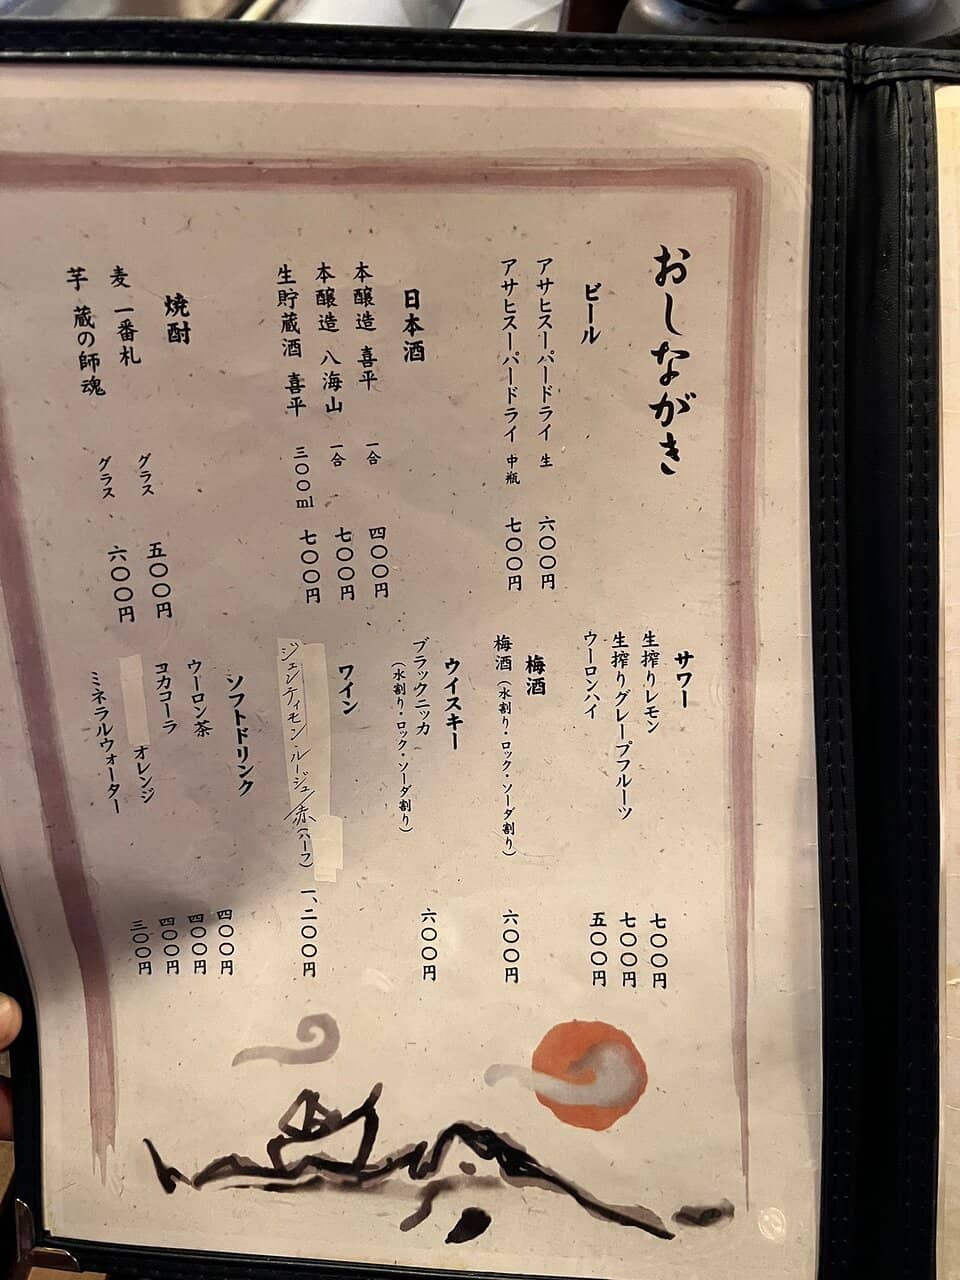 おしながき
ビール
アサヒスーパードライ 生 六〇〇円
アサヒスーパードライ 中瓶 七〇〇円
日本酒
本醸造 喜平 一合 四〇〇円
本醸造 八海山 一合 七〇〇円
生貯蔵酒 喜平 三〇〇ml 七〇〇円
焼酎
麦 一番札 グラス 五〇〇円
芋 蔵の師魂 グラス 六〇〇円
サワー
生搾りレモン 七〇〇円
生搾りグレープフルーツ 七〇〇円
ウーロンハイ 五〇〇円
梅酒
梅酒(水割り・ロック・ソーダ割り) 六〇〇円
ウイスキー
ブラックニッカ 六〇〇円
(水割り・ロック・ソーダ割り)
ワイン
ジェンティモン・ルージュ/赤(ハーフ) 一、二〇〇円
ソフトドリンク
ウーロン茶 四〇〇円
コカコーラ 四〇〇円
オレンジ 四〇〇円
ミネラルウォーター 三〇〇円